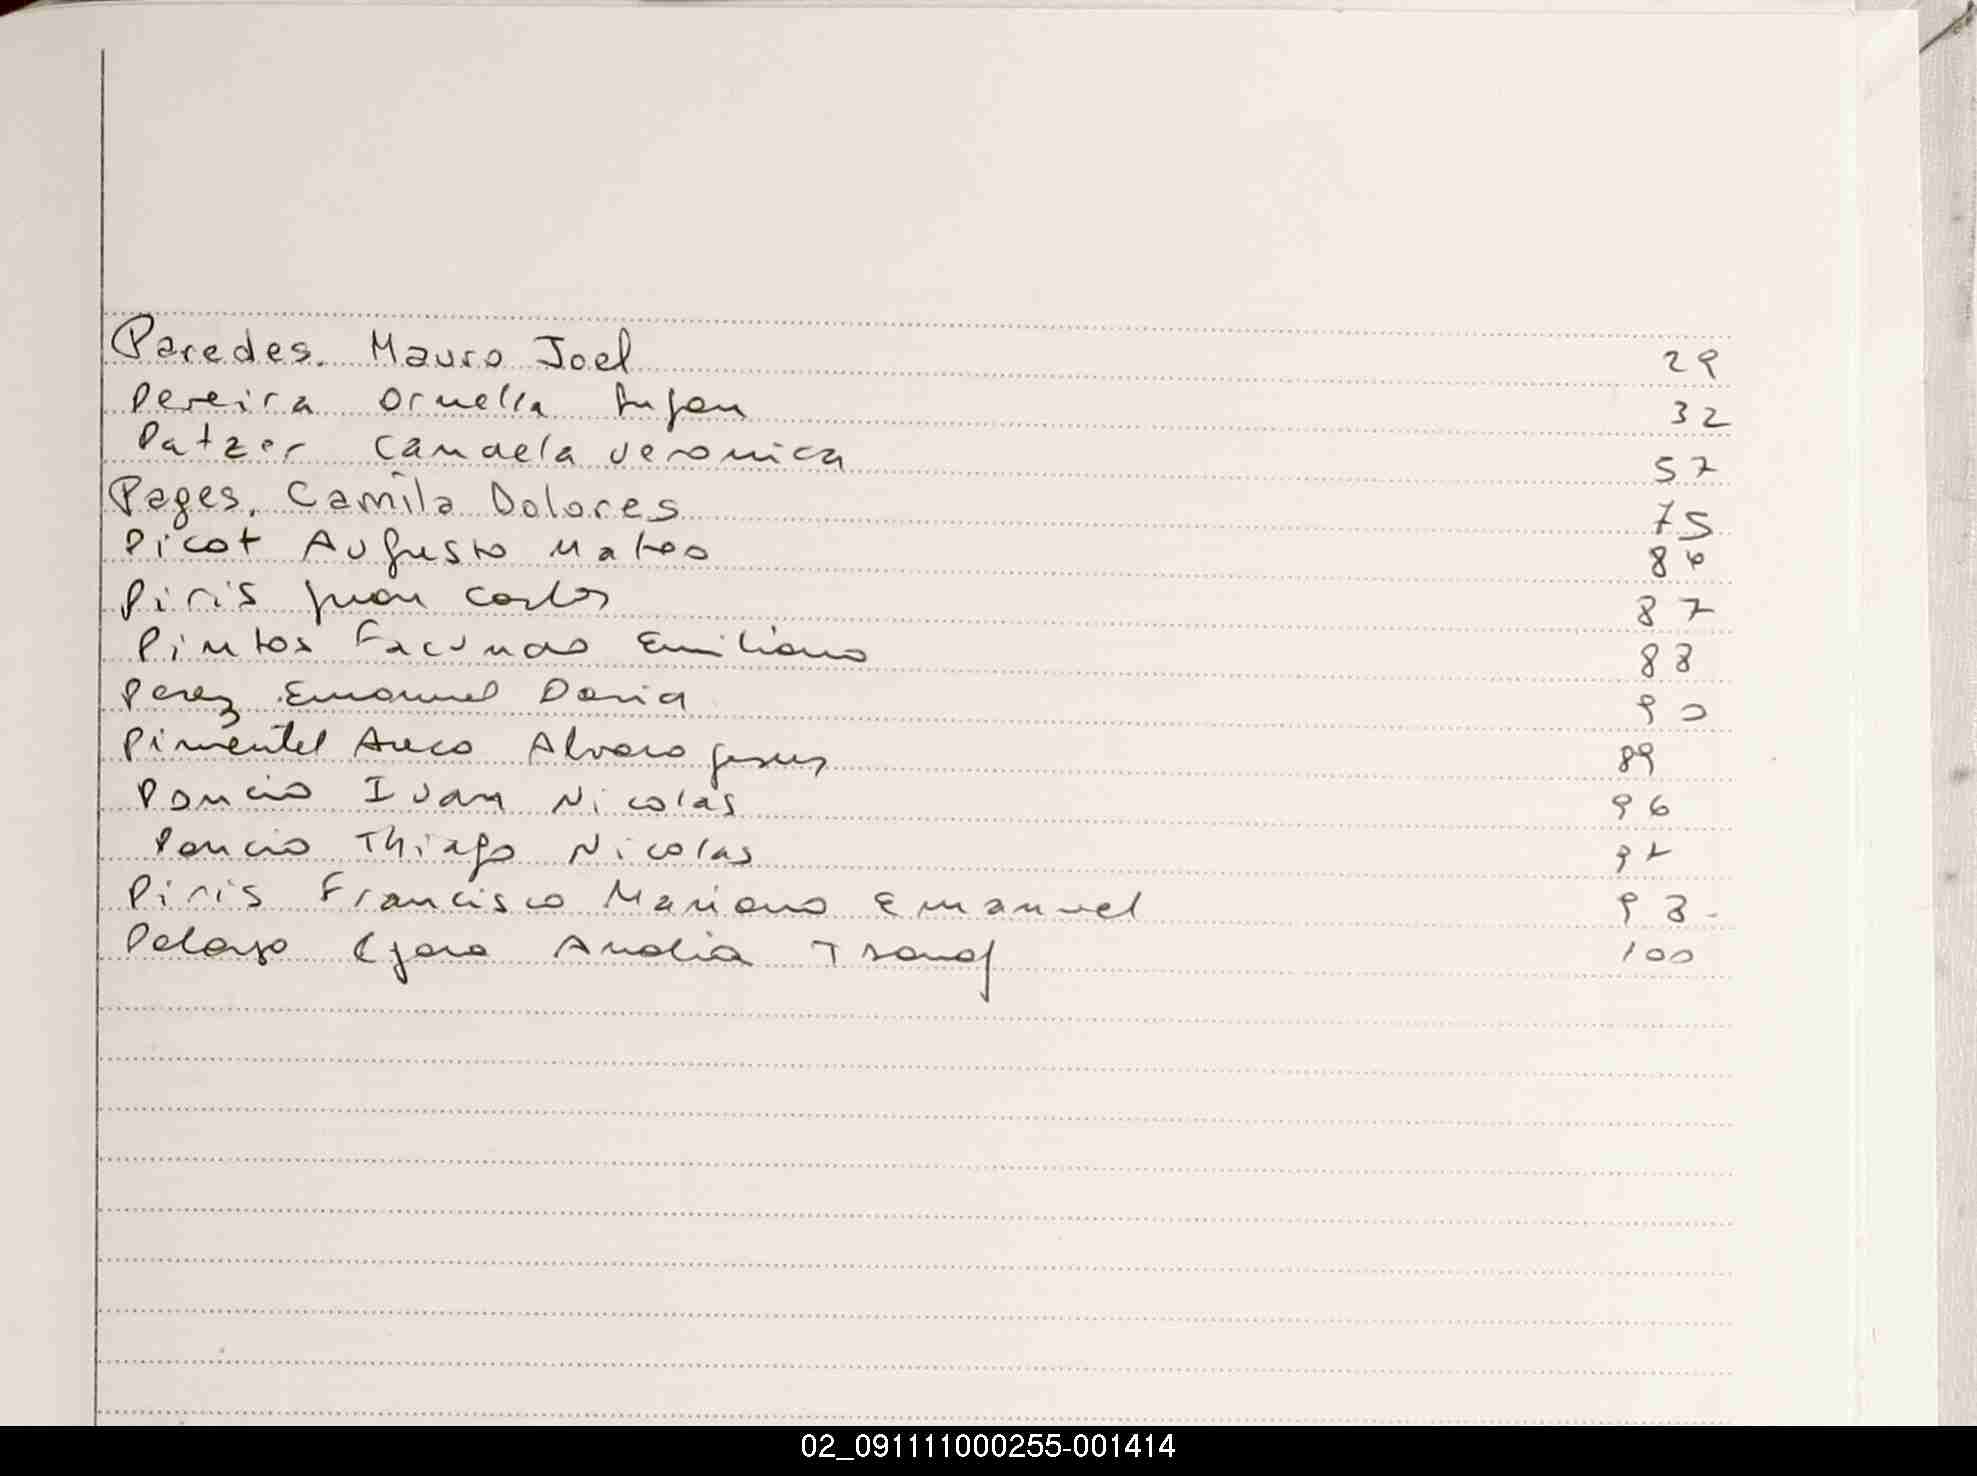 Paredes. Mauro Joel 29
Pereira Ornella Lujan 32
Patzer Candela Veronica 57
Pages, Camila Dolores 75
Picot Augusto Mateo 86
Piris Juan Carlos 87
Pintos Facundo Emiliano 88
Perez Emanuel Dario 90
Pimentel Areco Alvaro Jesus 89
Poncio Ivan Nicolas 96
Poncio Thiago Nicolas 97
Piris Francisco Mariano Emanuel 98
Pelayo 100
02_091111000255-001414